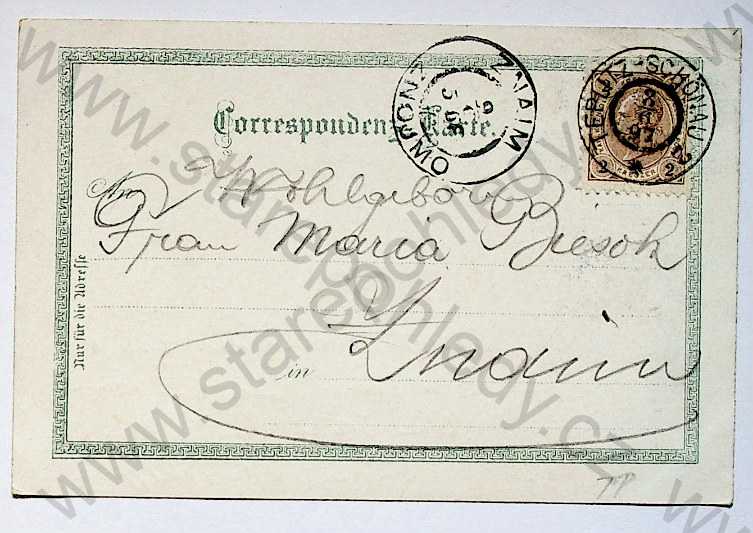 Correspondenz-Karte.
ZNAIM ZNOJMO
TEPLITZ-SCHÖNAU 2
2 2
An
Wohlgeborn
Frau Maria Biesok
Znaim
in
Nur für die Adresse
www.starepohledy.cz